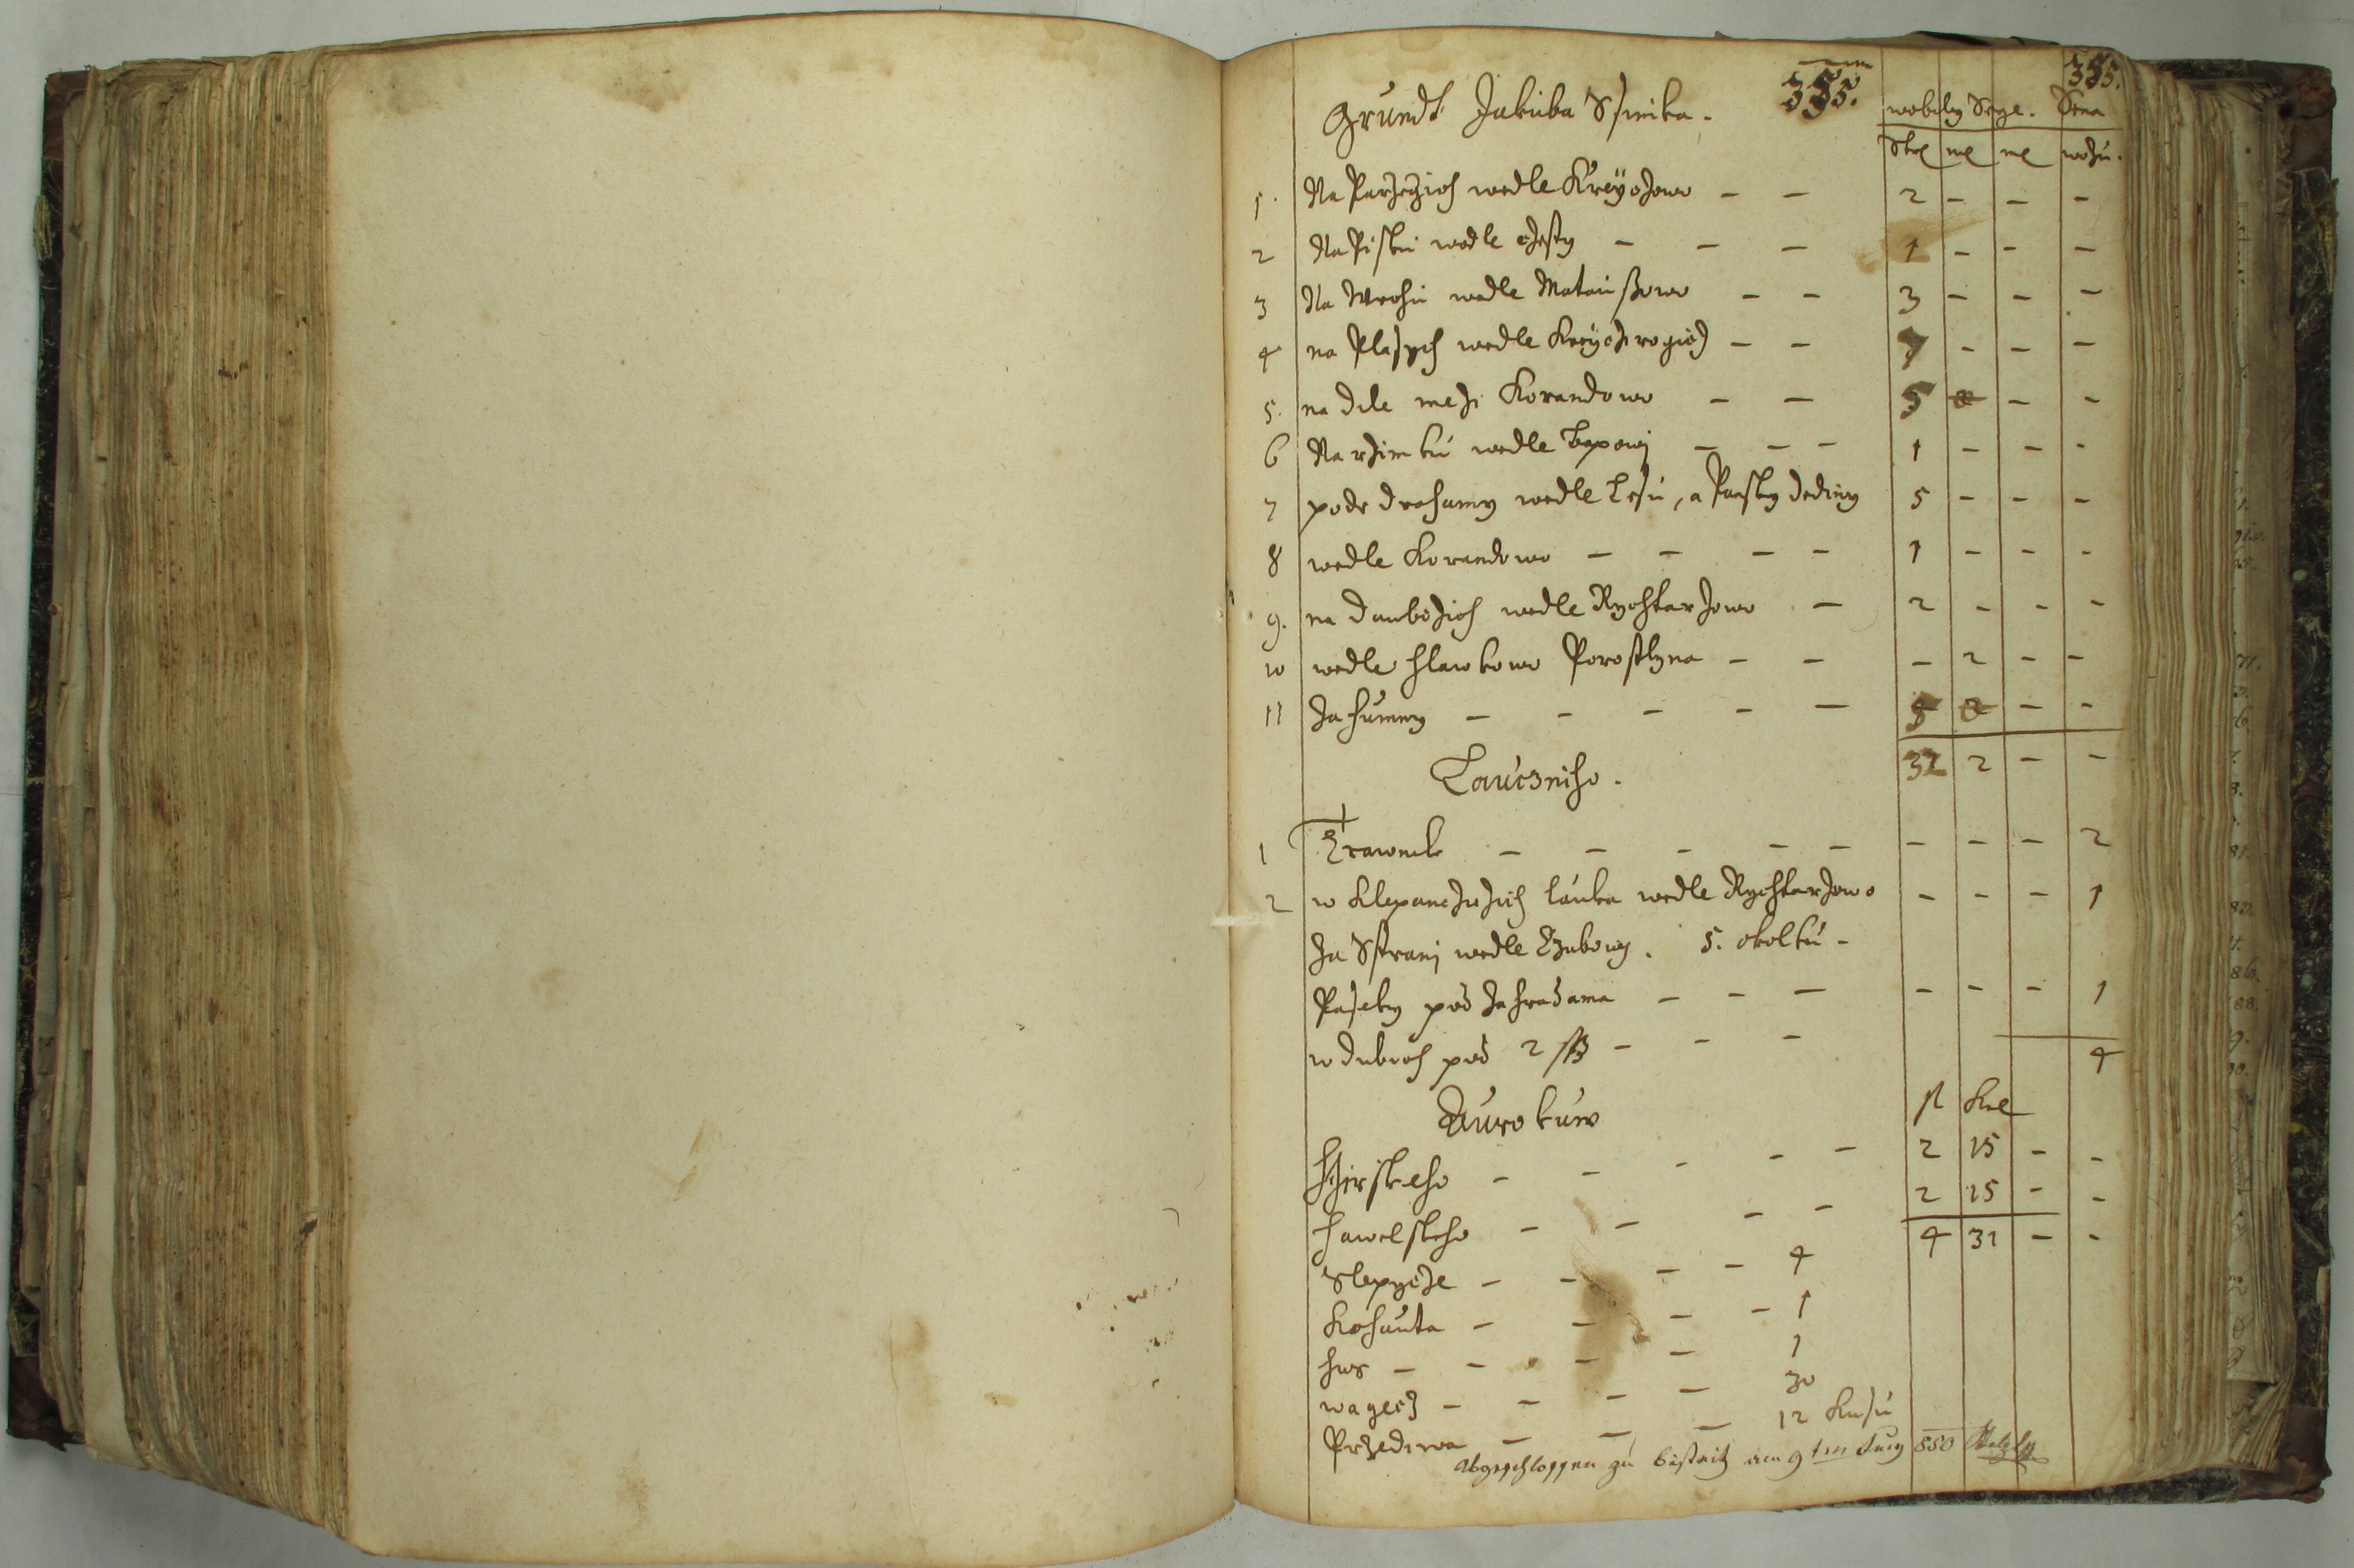 Grundt Jakuba Ssimka. 355. 355.
wobily Sege. Sena
Strl me me wozu.
1. Na Parzezich wedle Kreyczowo — — 2 — — —
2 Na Pisku wedle Czesty — — — 1 — — —
3 Na Wrchu wedle Matausowo — — 3 — — —
4 na Plasych wedle Kreyczirogicz — — 7 — — —
5. na dile mezi Korandowo — — 5 — —
6 Na rzimku wedle — — — 1 — — —
7 pode drahamy wedle Lesu, a Pansky dediny 5 — — —
8 wedle Korandowo — — — — 1 — — —
9. na Daubczich wedle Rychtarzowo — 2 — — —
10 wedle Hlawkowo Porostlyna — — — 2 — —
11 Za humny — — — — — 5 — —
32 2 — —
Lauczniho.
1 Trawnik — — — — — — — — 2
2 w Klepanczuzich lauka wedle Rychtarzowo — — — 1
Za Strani wedle Czubowy. 5. okolku —
Paseky pod Zahradama — — — — — — 1
w dubich pod 2 — — — 4
Aurokuw fl Kre
Girskeho — — — — — 2 15 — —
Hawelskeho — — — — 2 15 — —
4 31 — —
Slepycze — — — — 4
Kohauta — — — — 1
Hus — — — — 1
wagecz — — — — 30
Przediwa — — — 12 Kusu
Abgeschlossen zu Bistritz am 9 ten 850